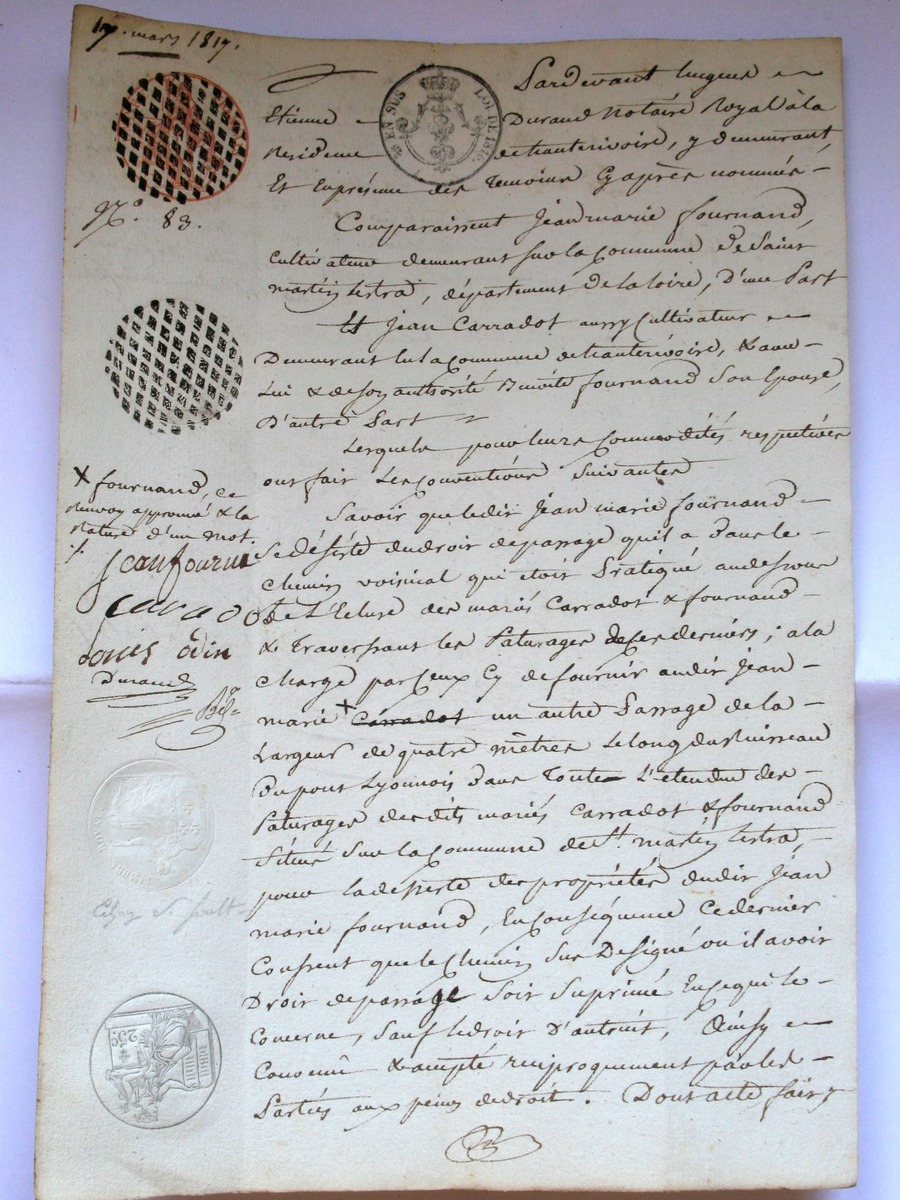 17. mars 1817.
EN SUS LOI DE 1816.
Pardevant hugues
Etienne Durand Notaire Royal à la
Residence de hauterivoire, y demeurant,
Et en présence des temoins cy après nommés
N.º 83.
Comparaissent Jean marie fournand,
Cultivateur demeurant sur la Commune de Saint
martin lestra, département de la loire, D'une Part
Et Jean Carradot aussy Cultivateur
Demeurant en la Commune de hauterivoire, & avec
Lui & de son authorité Benoite fournand Son Epouse,
D'autre Part
Lesquels pour leurs Commodités respectives
ont fait Les Conventions Suivantes
Savoir que ledit Jean marie fournand
Se désiste du droit de passage qu'il a dans le
Chemin voisinal qui étoit Pratiqué au dessous
De L'Ecluse des mariés Carradot & fournand
& Traversant les Paturages de ces derniers; a la
Charge par Ceux Cy de fournir audit Jean
marie + Carradot un autre Passage de la
Largeur de quatre mètres Le long du Ruisseau
Du pont Lyonnois Dans Toute L'étendue des
Paturages des dits mariés Carradot & fournand
Situés Sur la Commune de St. martin lestra,
pour la désserte des propriétés dudit Jean
marie fournand, En Conséquence Ce dernier
Consent que le Chemin Sus Désigné ou il avoit
Droit de passage Soit Suprimé En Ce qui le
Concerne, Sauf le droit D'autruit, Ainsy
Convenu & accepté reciproquement par les
Parties aux peines de droit. Dont acte fait
+ fournand, ce
Renvoy approuvé & la
Rature d'un mot
Jean fournand
Carado
Louis odin
Durand
25c